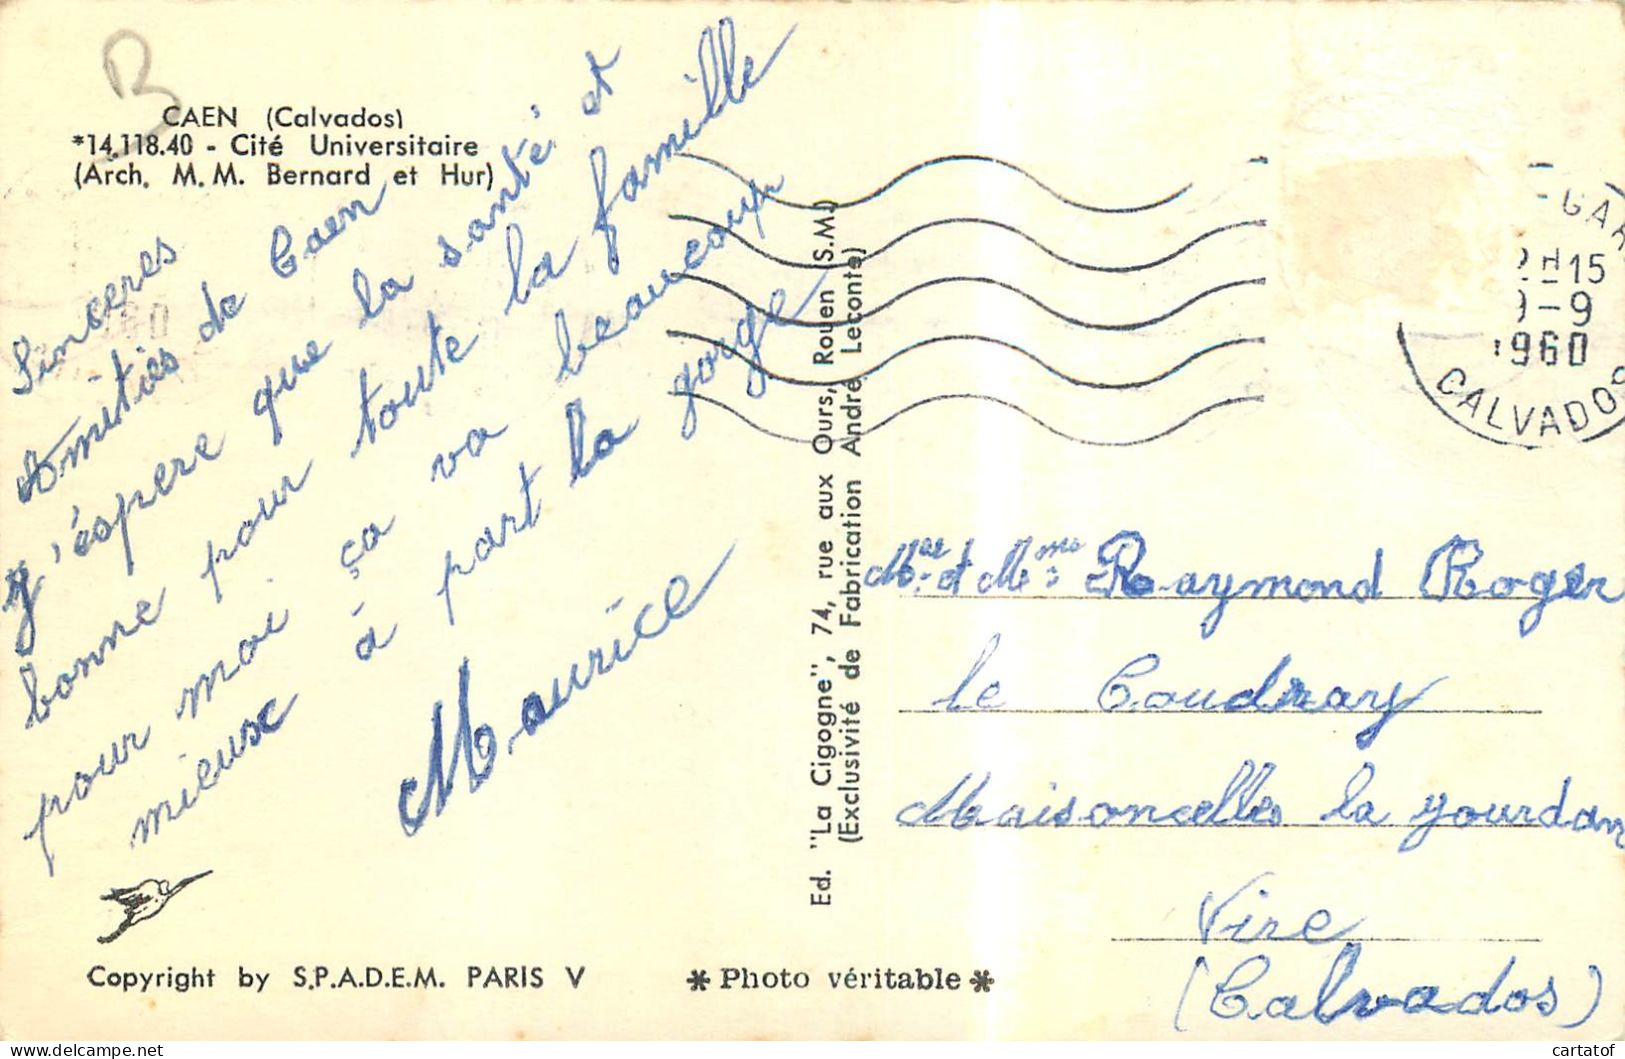 B
CAEN (Calvados)
*14.118.40 - Cité Universitaire
(Arch. M. M. Bernard et Hur)
Sinceres
Amitiés de Caen
J'éspere que la santé et
bonne pour toute la famille
pour moi ça va beaucoup
mieux à part la gorge
Maurice
Copyright by S.P.A.D.E.M. PARIS V
* Photo véritable *
Ed. "La Cigogne", 74, rue aux Ours, Rouen (S.M.)
(Exclusivité de Fabrication André Leconte)
GAR
15
9-9
1960
CALVADOS
Mr et Mme Raymond Roger
le Coudray
Maisoncelles la yourdan
Vire
(Calvados)
cartatof